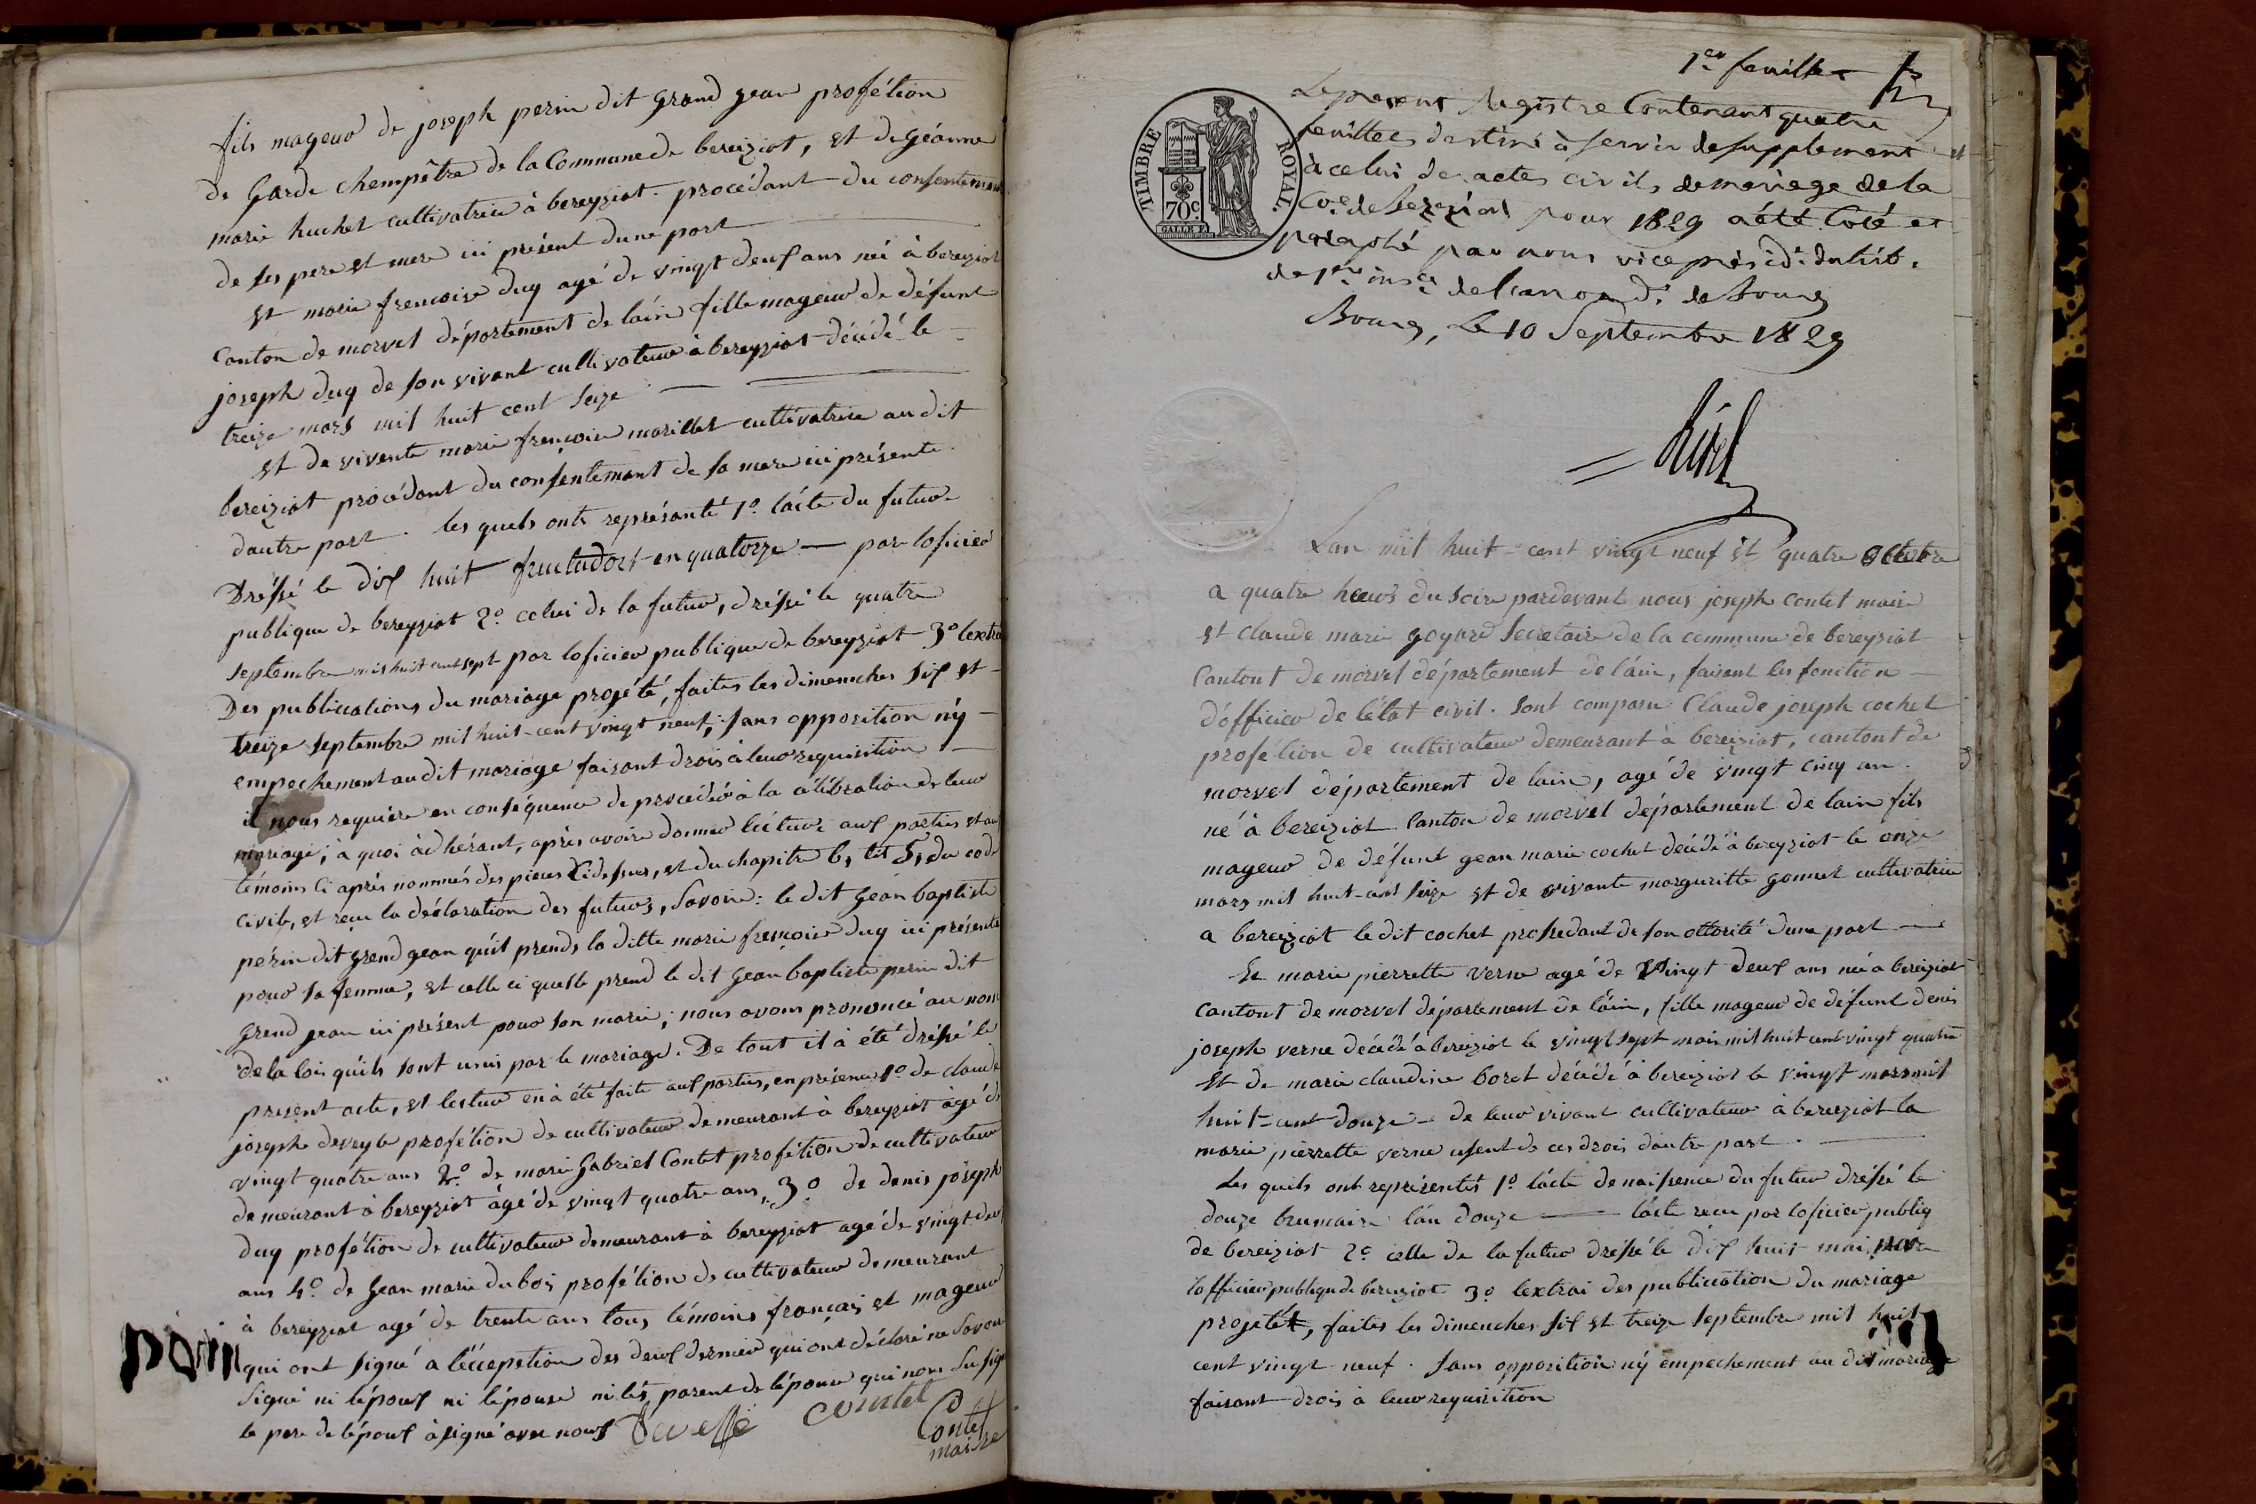 fils mageur de joseph perin dit grand gean profétion
de Garde chempêtre de la Commune de bereiziat, et de géanne
marie huchet cultivatrice à bereyziat. procédant du consentement
de ses pere et mere ici présent dune part
et marie frencoise duy agé de vingt deux ans né à bereiziat
Canton de morvel département de láin fille mageur de défunt
joseph duy de son vivant cultivateur à bereyziat décédé le
treize mars mil huit cent seize
et de vivente marie françoise marillet cultivatrice au dit
bereiziat procédant du consentement de sa mere ici présente
dautre part. les quels onts représanté 1º lácte du futur
Dréssé le dix huit fructudort en quatorze — par loficier
publique de bereyziat 2º celui de la futur, dréssé le quatre
septembre mil huit cent sept par loficier publique de bereyziat 3º lextra
Des publications du mariage projété, faites les dimenches six et
treize septembre mil huit-cent vingt neuf, sans opposition n'y
empechement au dit mariage faisant drois à leur requisition
il nous requiére en conséquence de procédér à la célébration de leur
mariage; à quoi àdhérant, aprés avoire donner lécture aux parties et au
témoins ci aprés nommés des pieces cidessus, et du chapitre 6, tit 5, du code
civile, et reçu la déclaration des futurs, Savoire: le dit Géan baptiste
périn dit grend gean qu'il prends la ditte marie frençoise duy ici présente
pour sa femme, et celle ci quelle prend le dit Gean baptiste perin dit
grend gean ici présent pour son marie; nous avons prononcé au nom
de la lois quils sont unis par le mariage. De tout il à été dréssé le
present acte, et lectur en à été faite aux parties, en présence 1º de claude
joseph deveyle profétion de cultivateur demeurant à bereyziat àgé de
vingt quatre ans 2º de marie Gabriel Contet profétion de cultivateur
demeurant à bereyziat àgé de vingt quatre ans, 3º de denis joseph
duy profétion de cultivateur demeurant à bereyziat agé de vingt deux
ans 4º. de Gean marie dubois profétion de cultivateur demeurant
à bereyziat agé de trente ans tous témoins français et mageur
qui ont signé a lécception des deux dernier qui ont déclaré ne Savoir
Signé ni lépoux ni lépouse ni lés parent de lépouse qui nons su sig
le pere de lépoux à signé avec nous
perin
Contet
Contet
maire
1er feuillet
Le present Registre Contenant quatre
feuillets destiné à servir de supplement
à celui des actes civils de mariage de la
Coe de Bereziat pour 1829 a été Coté et
paraphé par nous vice présidt du trib.
de 1re insce de l'arrondt de Bourg
Bourg, Le 10 Septembre 1829
TIMBRE ROYAL.
70c
Lan mil huit-cent vingt neuf et quatre Octobre
a quatre heurs du soire pardevant nous joseph contet maire
et claude marie goyard secretaire de la commune de bereyziat
Cantont de morvel département de láin, faisant les fonction
d'officier de létat civil. Sont comparu Claude joseph cochet
profétion de cultivateur demeurant à bereiziat, cantont de
morvel département de lain, agé de vingt cinq an.
né à bereiziat Canton de morvel département de lain fils
mageur de défunt gean marie cochet décédé à bereyziat le onze
mars mil huit-cent seize et de vivante margueritte gonnet cultivatrice
a bereiziat le dit cochet prosedant de son ottorité dune part
Et marie pierrette verne agé de vingt deux ans né a bereiziat
cantont de morvel département de láin, fille mageur de défunt denis
joseph verne décédé à bereiziat le vingt sept mai mil huit cent vingt quatre
et de marie claudine boret décédé à bereiziat le vingt mars mil
huit-cent douze — de leur vivant cultivateur à bereyziat la
marie pierrette verne usent de ces drois dautre part.
Les quels ont représentés 1º lácte de naissence du futur dréssé le
douze brumaire lán douze — lácte recu par loficier publiq
de bereiziat 2º celle de la futur dréssé le dix huit mai par
lofficier publique de bereiziat 3º lextrai des publication du mariage
projetét, faites les dimenches six et treize septembre mil huit
cent vingt neuf. Sans opposition n'y empechement au dit mariage
faisant drois à leur requisition